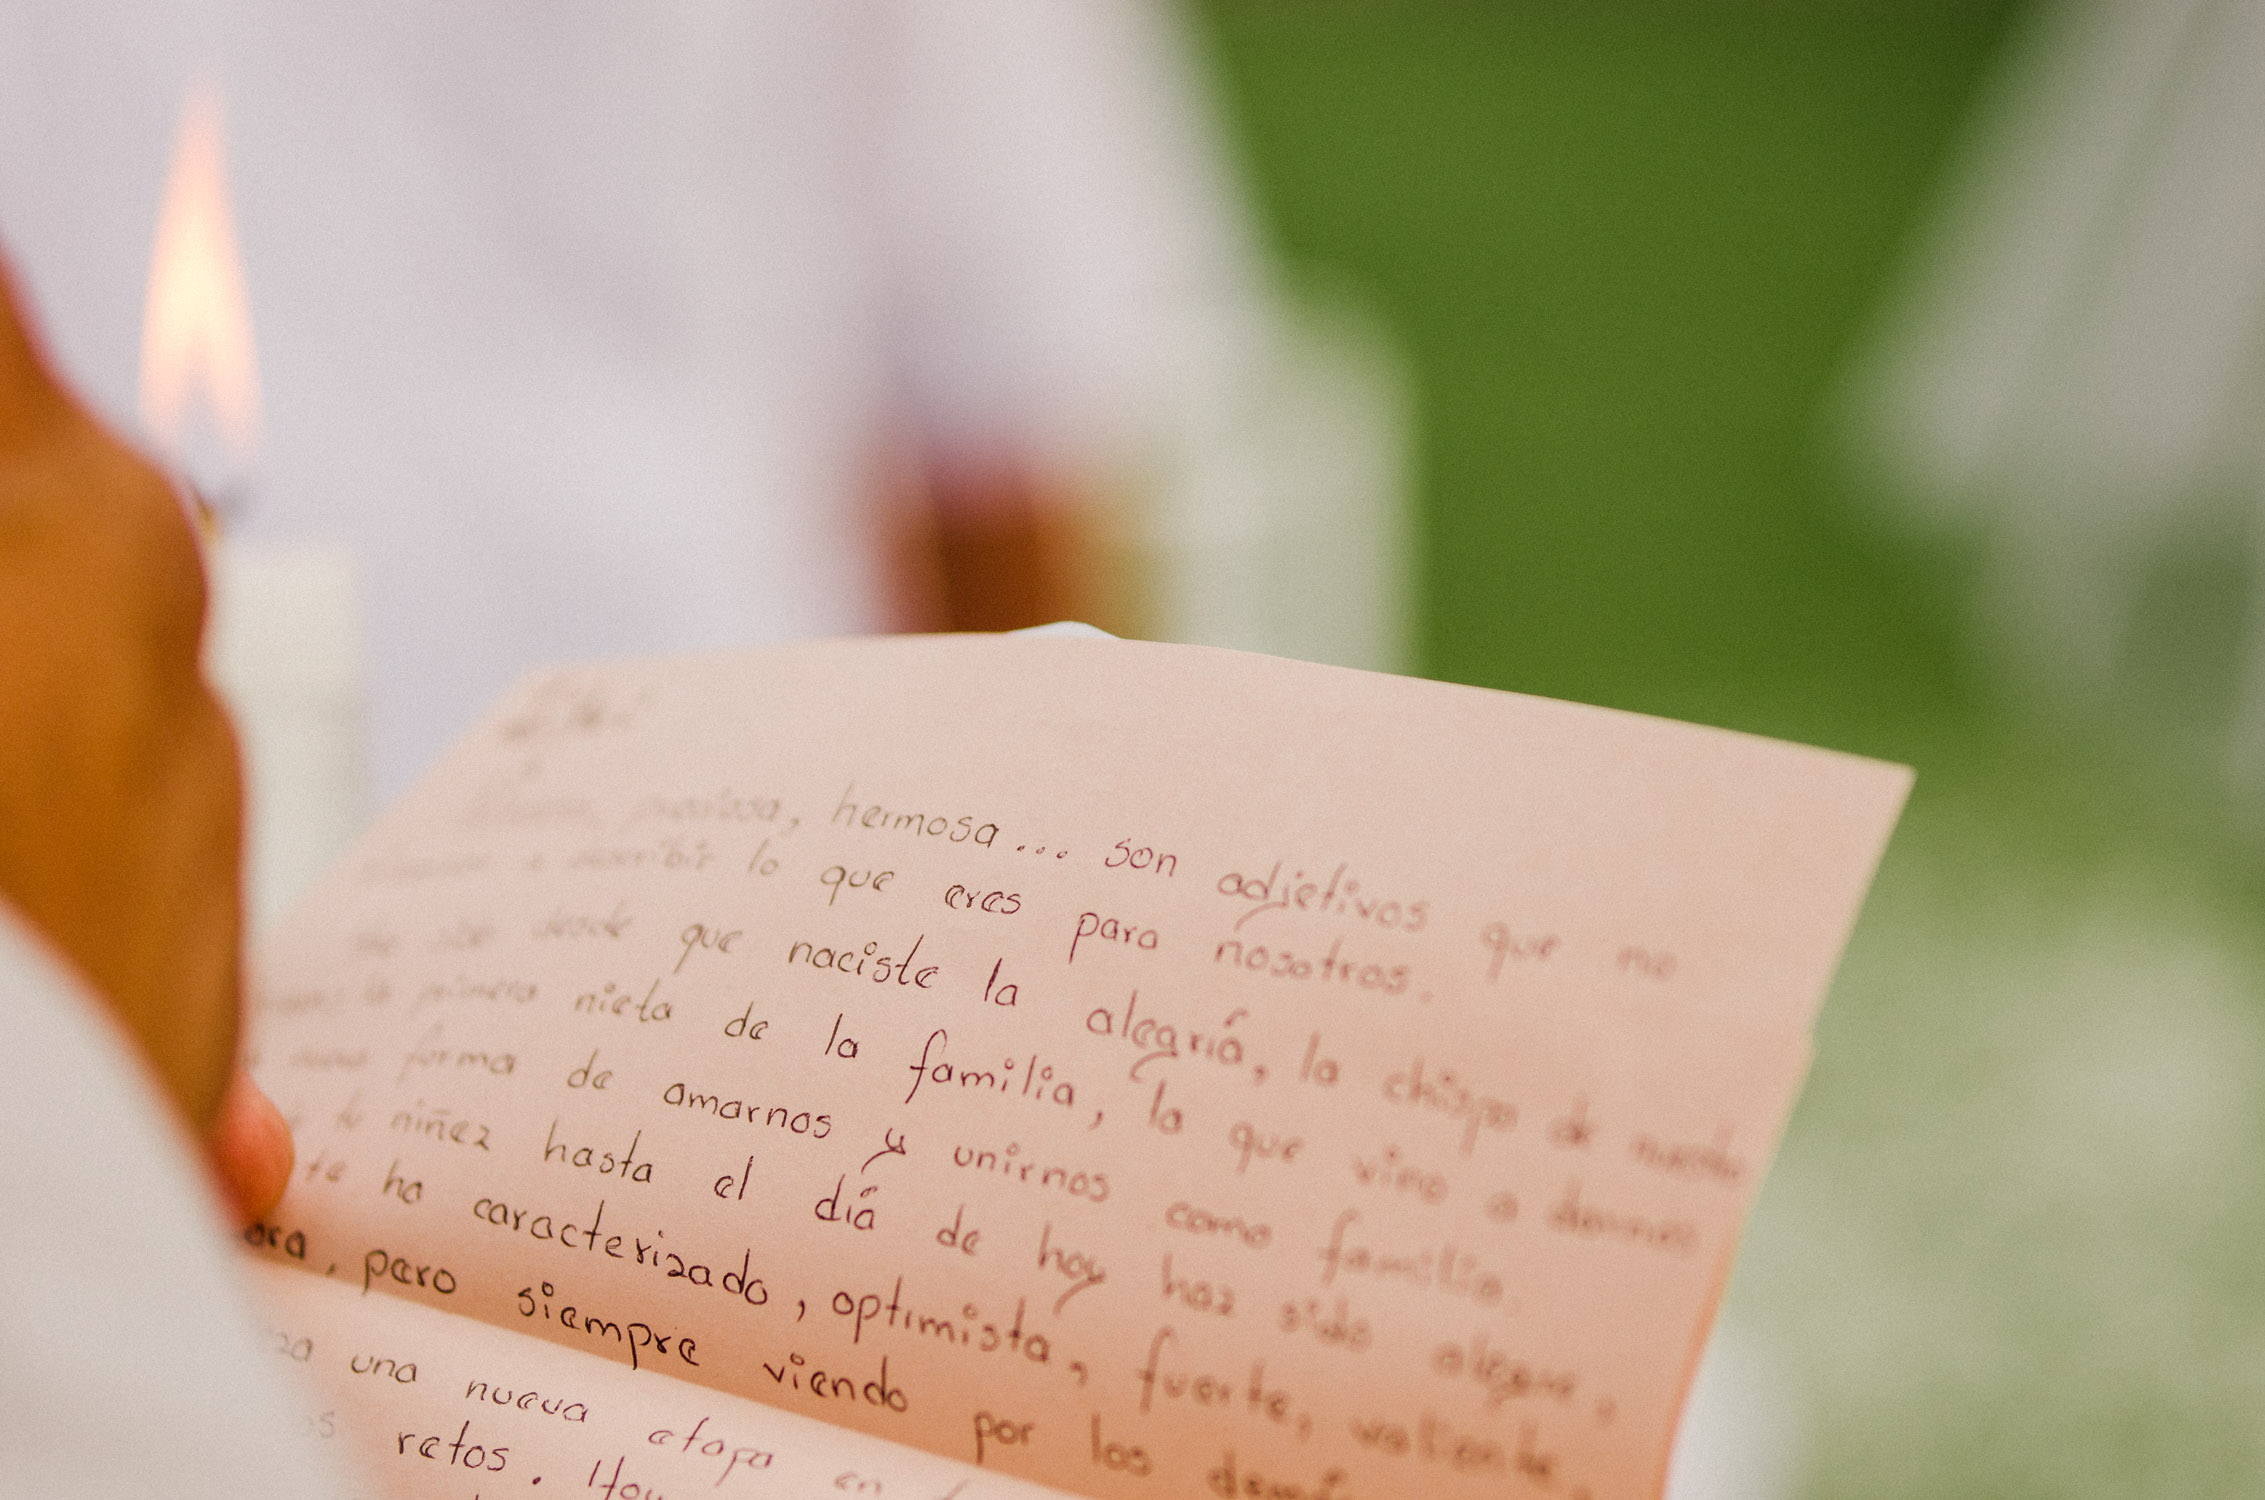 preciosa, hermosa... son adjetivos que no
escribir lo que eres para nosotros.
desde que naciste la alegriá, la chispa de nuestra
la primera nieta de la familia, la que vino a
forma de amarnos y unirnos como familia
tu niñez hasta el diá de hoy haz sido alegre,
te ha caracterizado, optimista, fuerte, valiente,
pero siempre viendo por los
una nueva etapa en
retos. Hoy